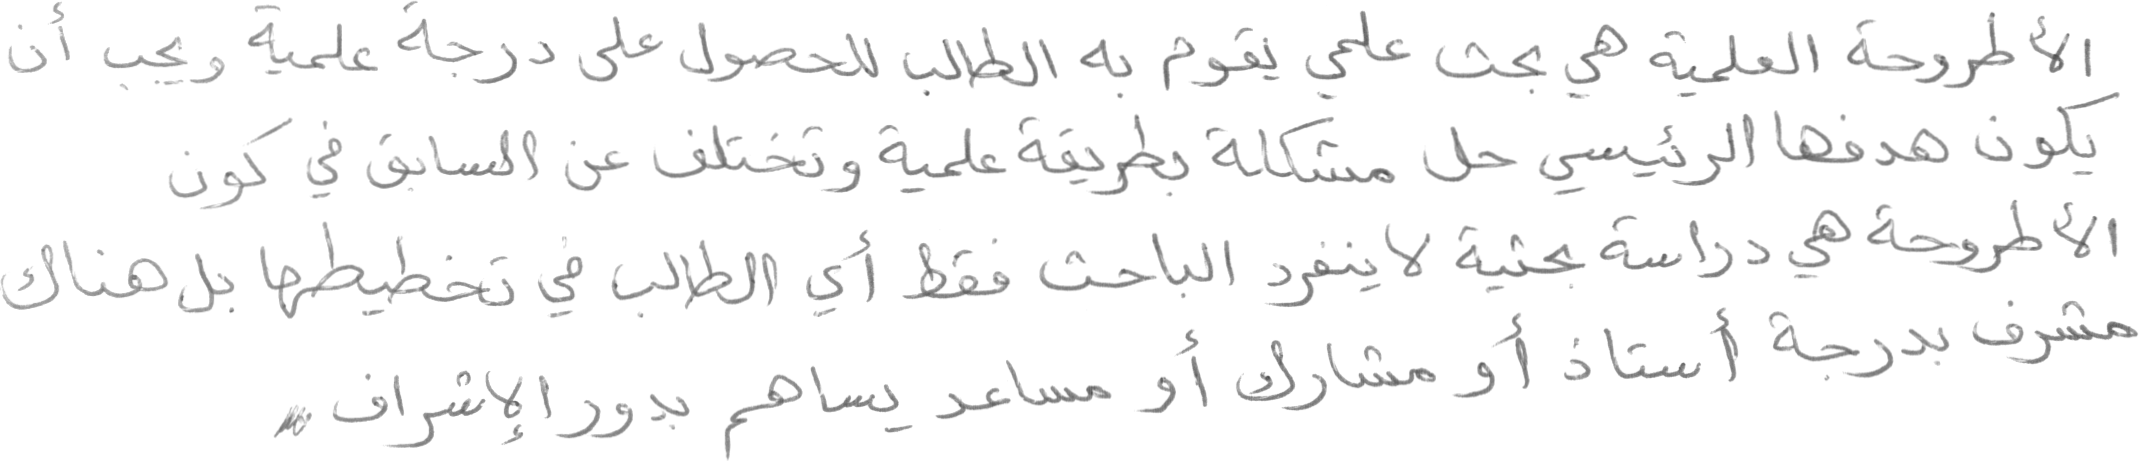 الأطروحة العلمية هي بحث علمي يقوم به الطالب للحصول على درجة علمية ويجب أن
يكون هدفها الرئيسي حل مشكلة بطريقة علمية وتختلف عن السابق في كون
الأطروحة هي دراسة بحثية لا ينفرد الباحث فقط أي الطالب في تخطيطها بل هناك
مشرف بدرجة أستاذ أو مشارك أو مساعد يساهم بدور الإشراف